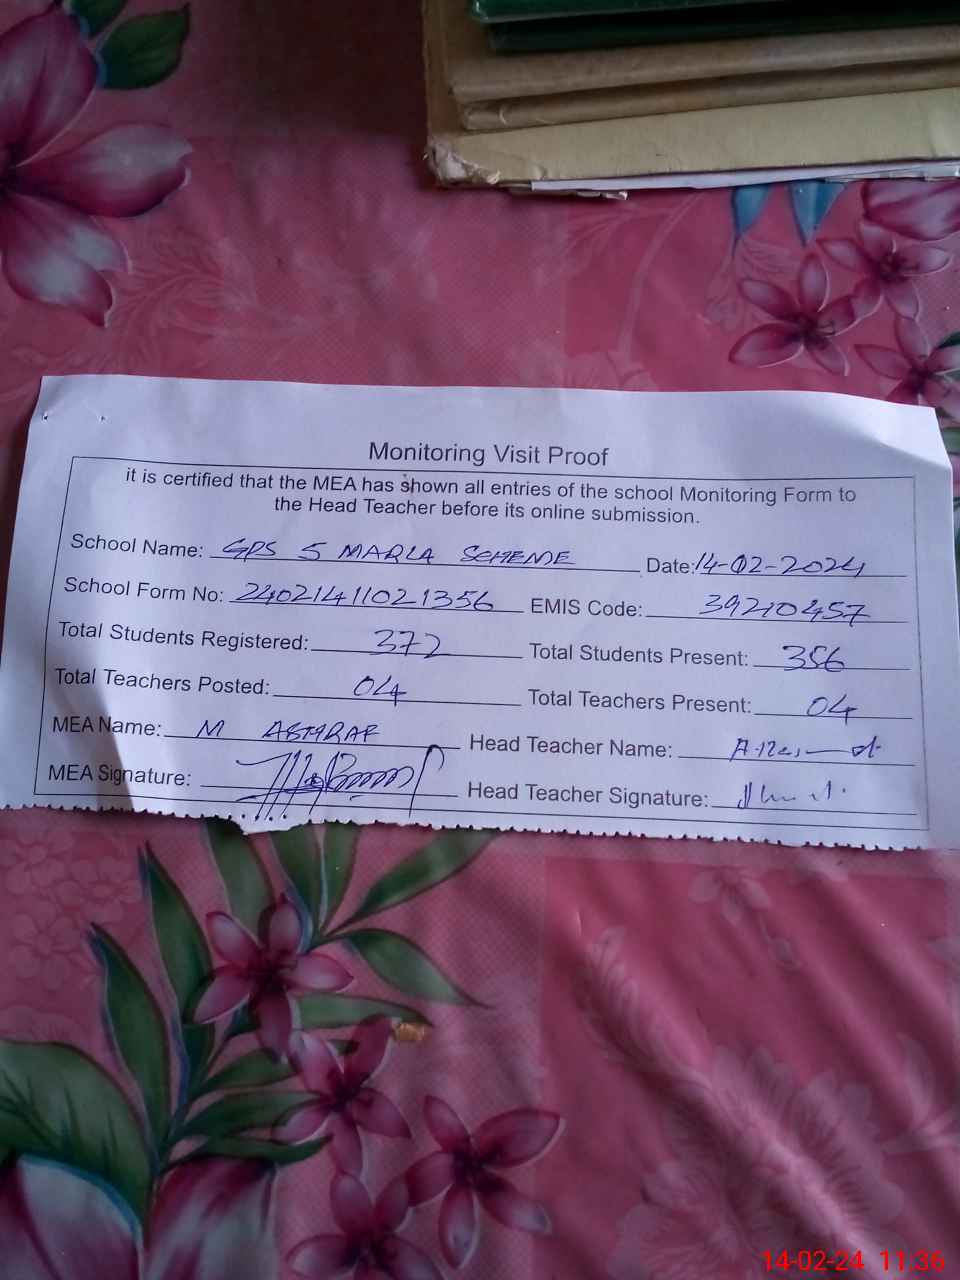 Monitoring Visit Proof
it is certified that the MEA has shown all entries of the school Monitoring Form to
the Head Teacher before its online submission.
School Name: GPS 5 MARLA SCHEME Date: 14-02-2024
School Form No: 24021411021356 EMIS Code: 39210457
Total Students Registered: 372 Total Students Present: 356
Total Teachers Posted: 04 Total Teachers Present: 04
MEA Name: M ASHRAF Head Teacher Name:
MEA Signature: Head Teacher Signature:
14-02-24 11:36